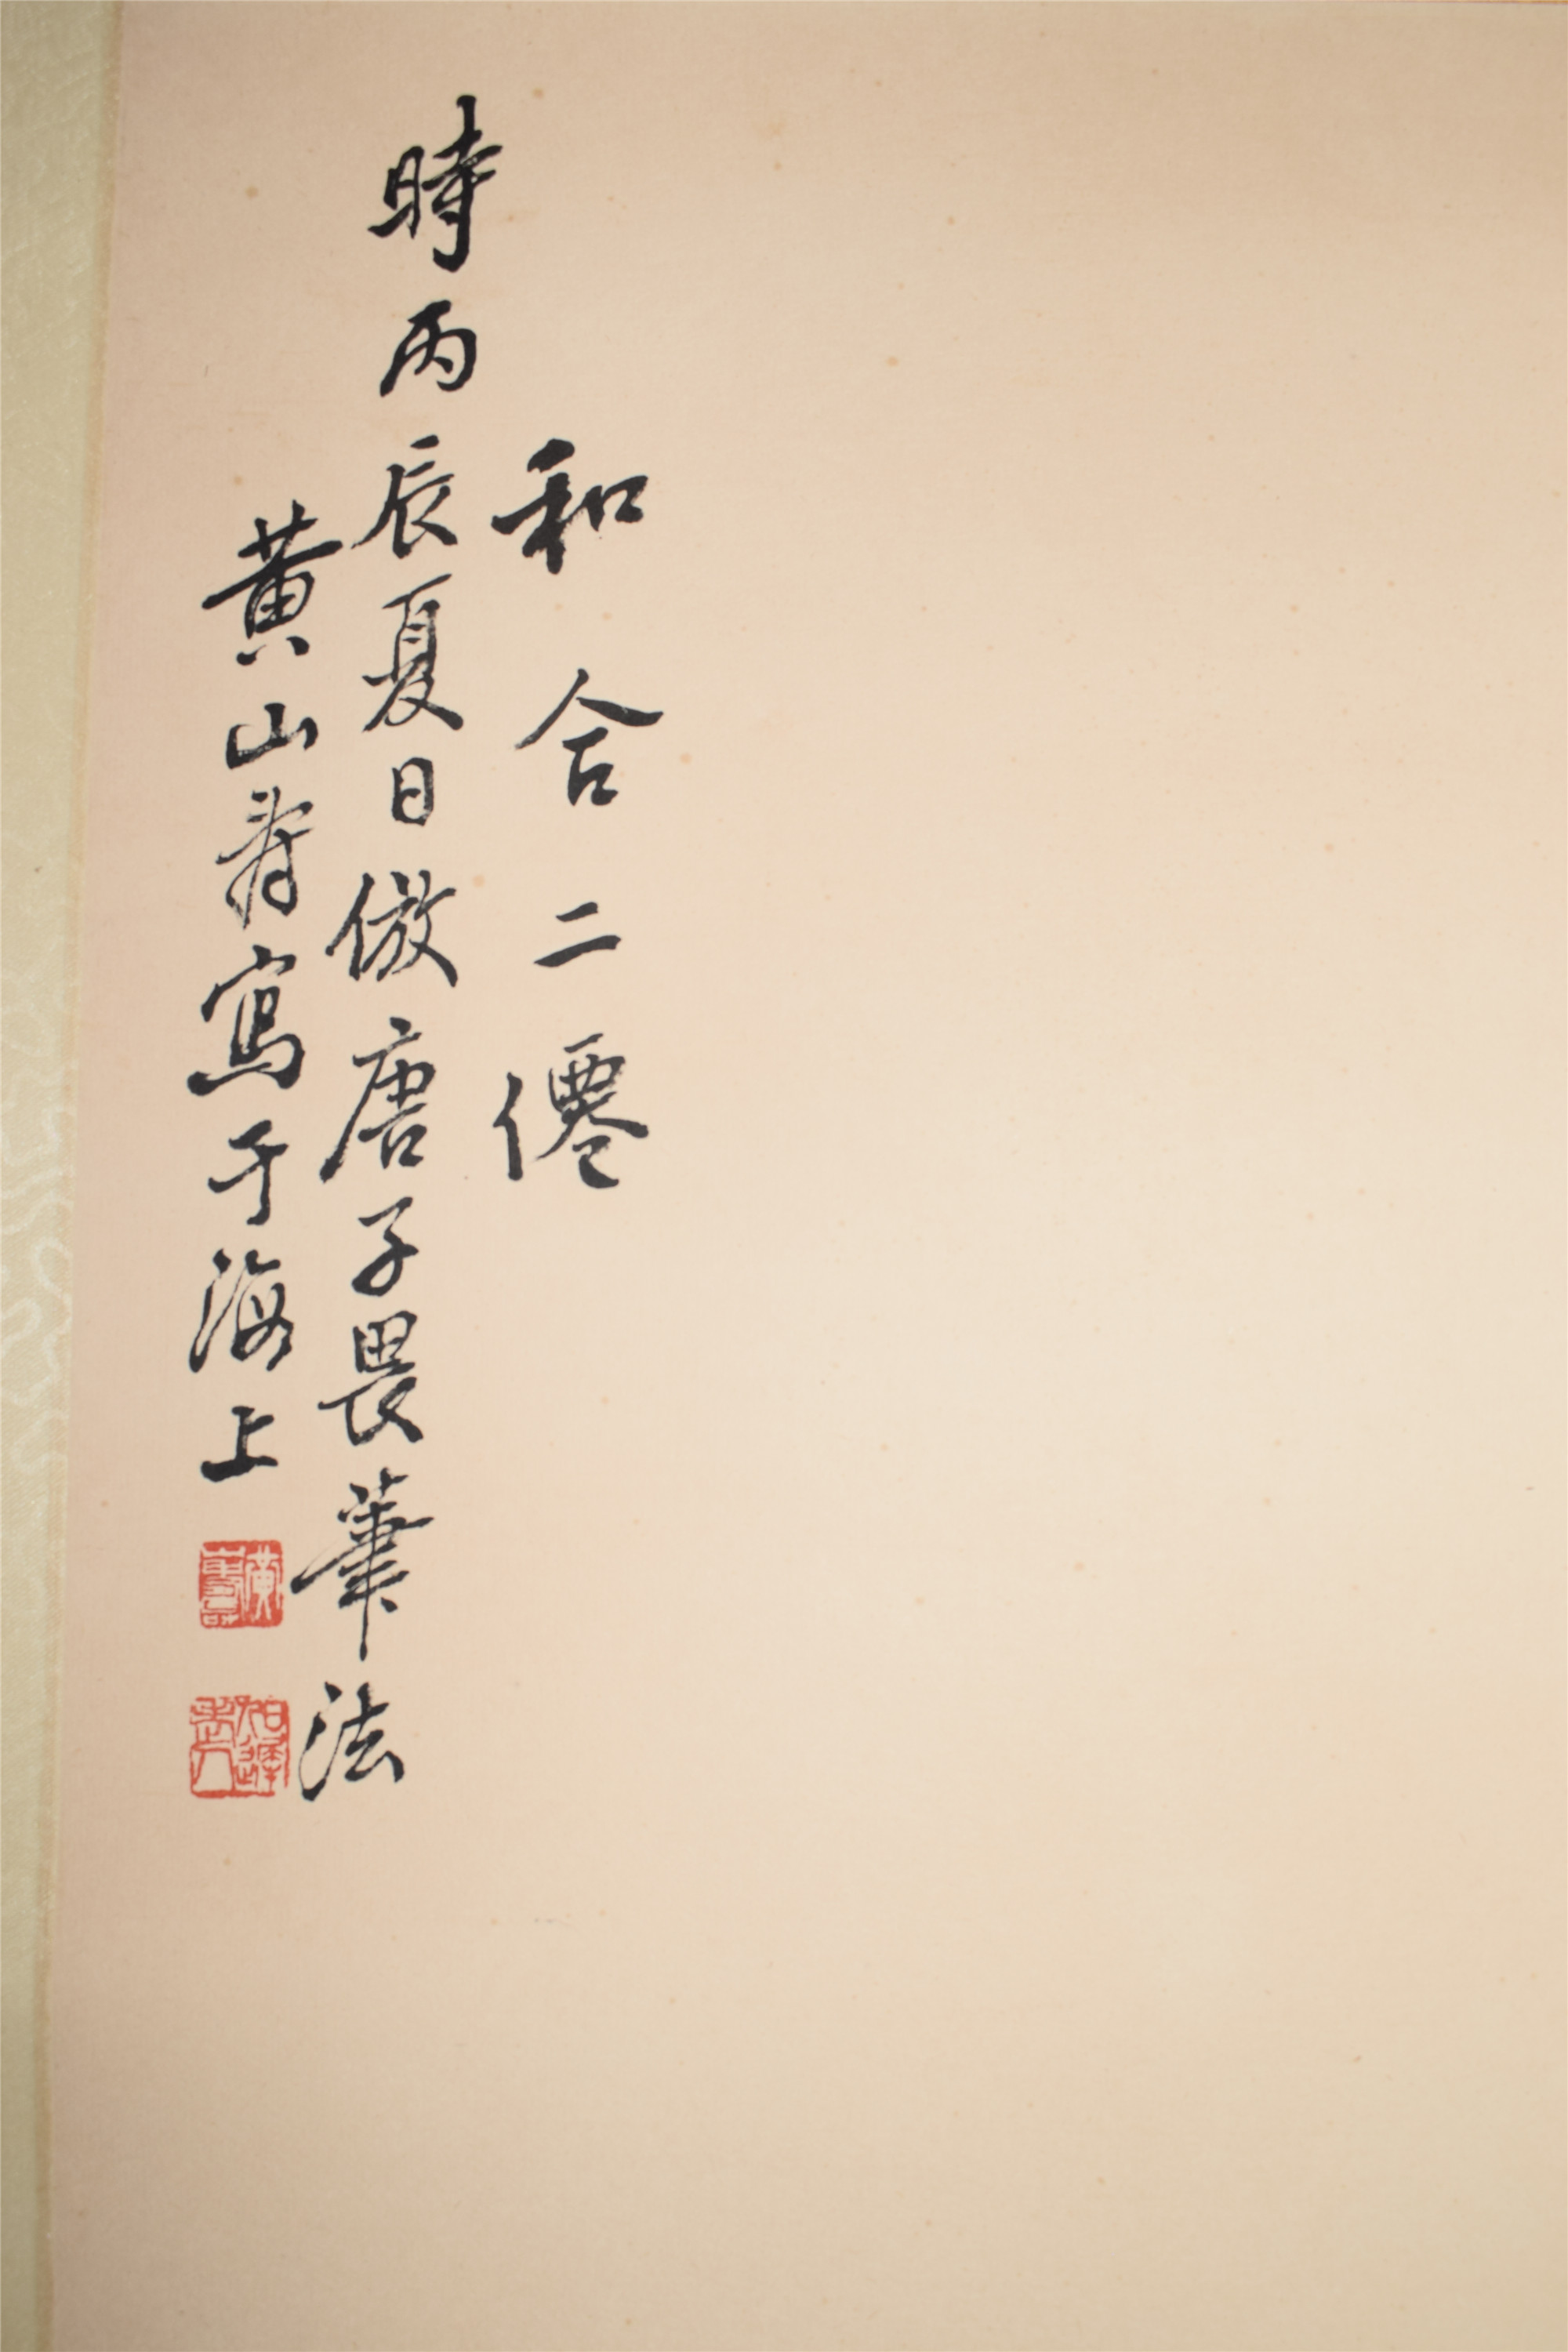 和合二僊
時丙辰夏日倣唐子畏筆法
黄山壽寫于海上